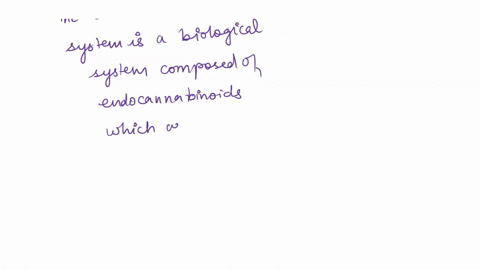 system is a biological
system composed of
endocannabinoids
which